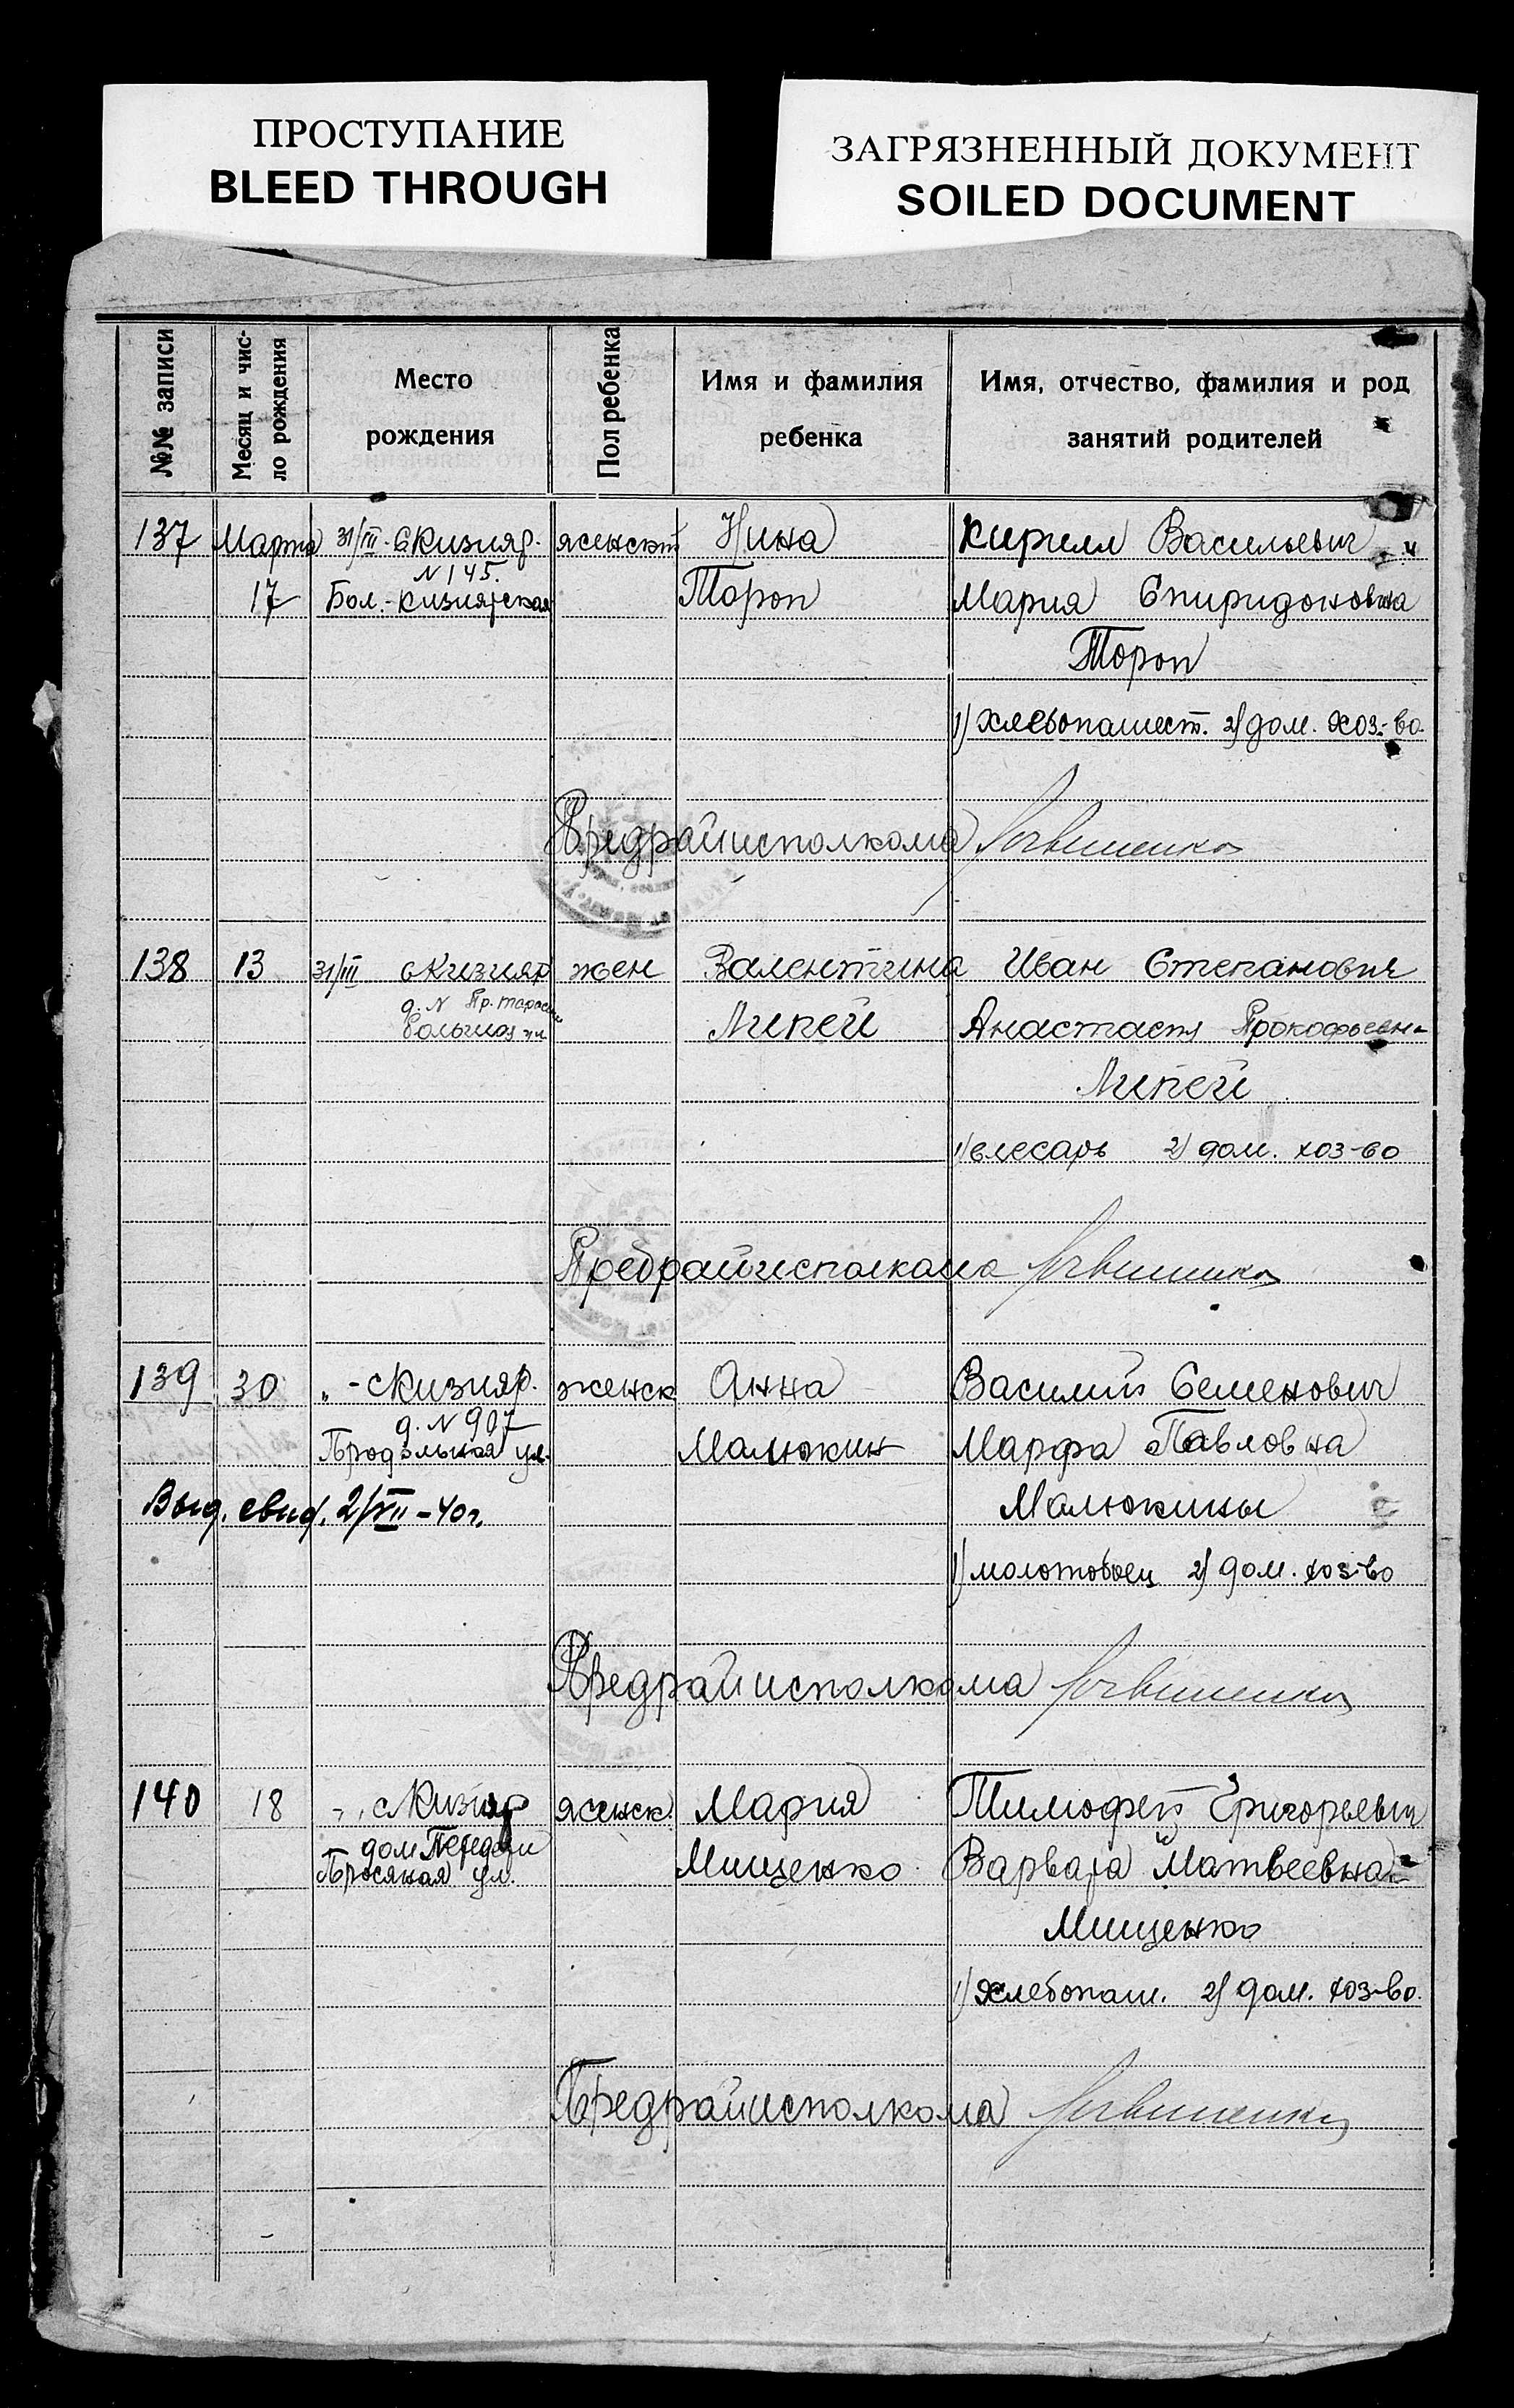 ПРОСТУПАНИЕ
BLEED THROUGH
ЗАГРЯЗНЕННЫЙ ДОКУМЕНТ
SOILED DOCUMENT
№№ записи
Месяц и чис-
ло рождения
Место
рождения
Пол ребенка
Имя и фамилия
ребенка
Имя, отчество, фамилия и род
занятий родителей
137 Марта 31/III. с Кизияр. женский Нина Кирилл Васильевич и
N 145.
17 Бол.-Кизиярская Тороп Мария Спиридоновна
Тороп
1) хлебопашест. 2) дом. хоз-во.
Предрайисполкома
138 13 31/III с Кизияр жен Валентина Иван Степанович
д. N Пр.
Большая ул Липей Анастасия Прокофьевна
Липей
1) слесарь 2) дом. хоз-во
Предрайисполкома
139 30 „ - с Кизияр. женск Анна Василий Семенович
д. N 907
Продольная ул. Малюкин Марфа Павловна
Выд. свид. 2/XII-40г. Малюкины
1) молотобоец 2) дом. хоз-во
Предрайисполкома
140 18 „ с Кизияр женск. Мария Тимофей Григорьевич
дом
Просяная ул. Мищенко Варвара Матвеевна
Мищенко
1) Хлебопаш. 2) дом. хоз-во.
Предрайисполкома